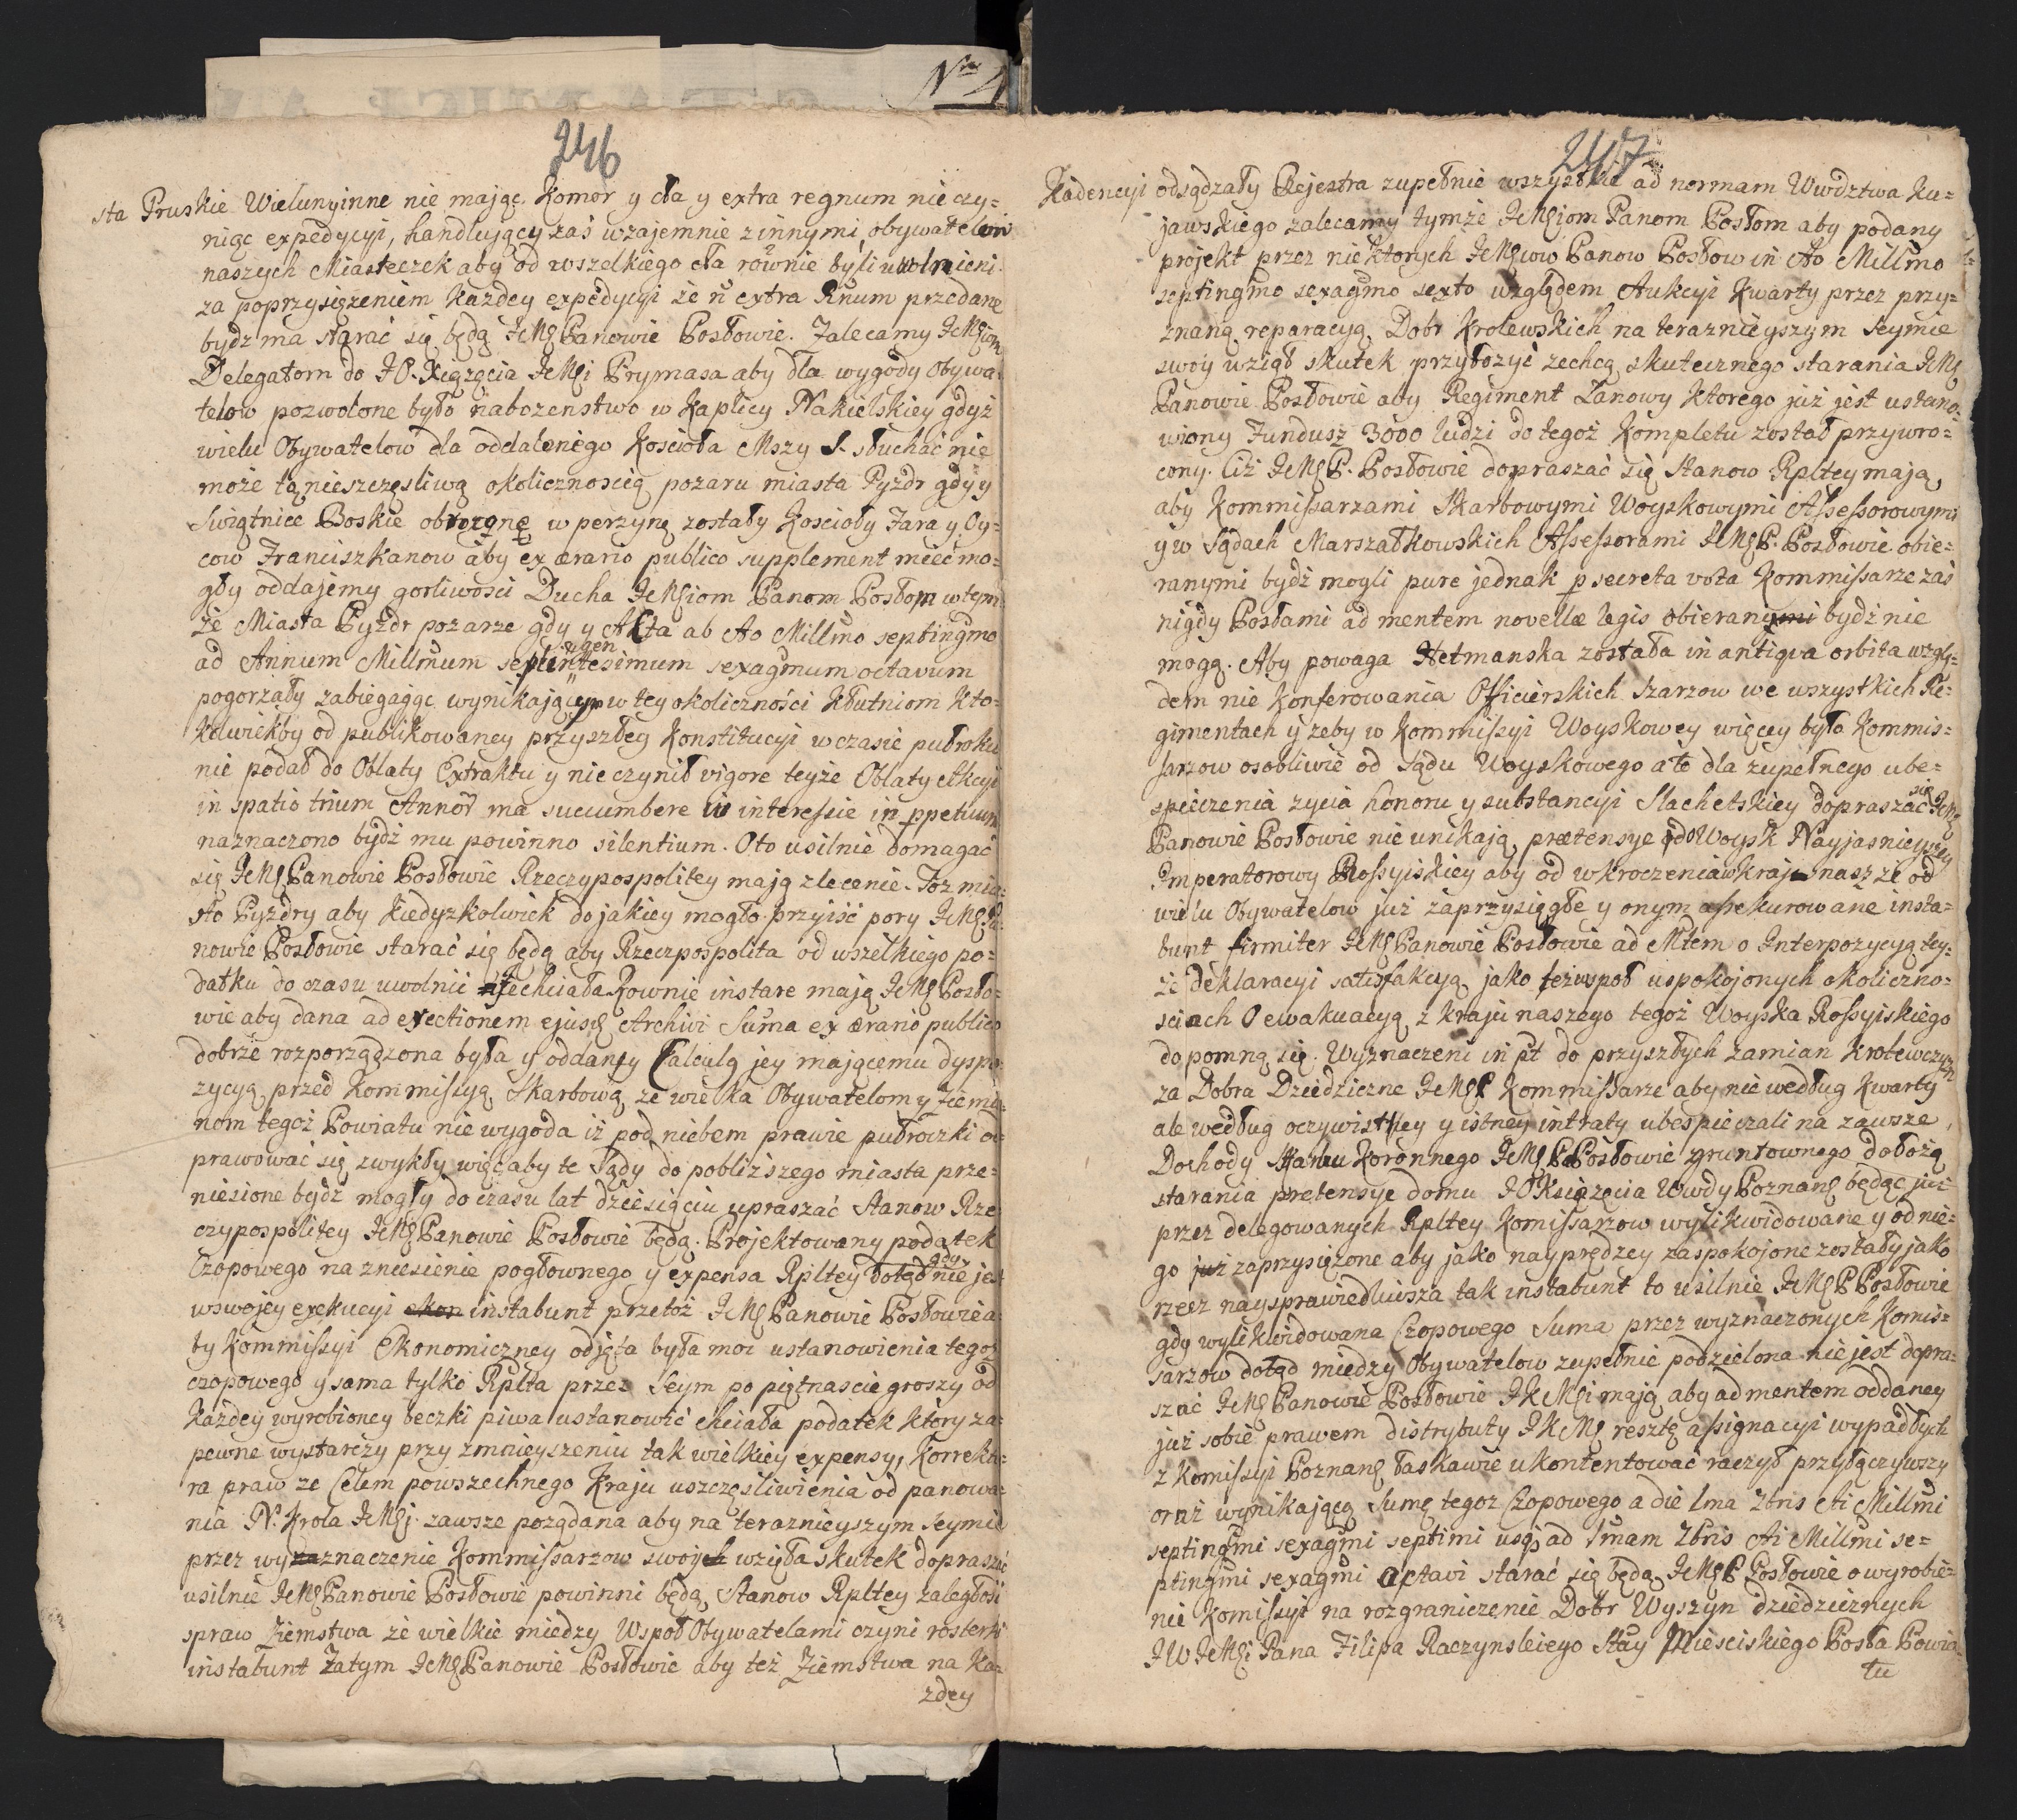 Nro 4
246
sta Pruskie Wielunyinne nie mając Komor y cła y extra regnum nie czy=
niąc expedycyi, handlujący zaś wzajemnie z innymi obywatelmi
naszych Miasteczek aby od wszelkiego cła rownie byli uwolnieni
za poprzysiężeniem każdey expedycyi że ń extra Rnum przedane
bydź ma starać się będą JcMċ Panowie Posłowie. Zalecamy JcMċiom
Delegatom do JO. Xiążęcia JcMċi Prymasa aby dla wygody Obywa=
telow pozwolone było nabozenstwo w Kaplicy Nakielskiey gdyż
wielu Obywatelow dla oddalenego Kościoła Mszy S. słuchać nie
może tą nieszczęsliwą okolicznoscią pozaru miasta Pyżdr gdy y
Swiątnice Boskie obrocone w perzynę zostały Koscioły Fara y Oy=
cow Franciszkanow aby ex ærario publico supplement mieć mo=
gły oddajemy gorliwości Ducha JcMċiom Panom Posłom w tym=
że Miasta Pyżdr pozarze gdy y Akta ab Ao Millmo septingmo
ad Annum Millmum septingentesimum sexagmum octavum
pogorzały zabiegając wynikającym w tey okoliczności Kłutniom Kto=
kolwiekby od publikowaney przyszłey Konstitucyi w czasie pułroku
nie podał do Oblaty Extraktu y nie czynił vigore teyże Oblaty Akcyi
in spatio trium Annor ma succumbere w interessie in ppetuum
naznaczono bydź mu powinno silentium. Oto usilnie domagać
się JcMċ Panowie Posłowie Rzeczypospolitey mają zlecenie. Toż mia=
sto Pyzdry aby kiedyzkolwiek do jakiey mogło przyiść pory JcMċ Pa=
nowie Posłowie starać się będą aby Rzeczpospolita od wszelkiego po=
datku do czasu uwolnić je chciała Rownie instare mają JcMċ Posło=
wie aby dana ad erectionem ejusq Archivi Suma ex ærario publico
dobrze rozporządzona była y oddany Calculg jey mającemu dyspo=
zycyą przed Kommissyą Skarbową że wielka Obywatelom y Ziemia=
nom tegoż Powiatu nie wygoda iż pod niebem prawie pułroczki od=
prawować się zwykły więc aby te Sądy do pobliższego miasta prze=
niesione bydź mogły do czasu lat dziesięciu upraszać Stanow Rze
czypospolitey JcMċ Panowie Posłowie będą. Projektowany podatek
Czopowego na zniesienie pogłownego y expensa Rpltey gdy dotąd nie jest
w swojey exekucyi ekon instabunt przetoż JcMċ Panowie Posłowie a=
by Kommissyi Ekonomiczney odjęta była moc ustanowienia tegoż
czopowego y sama tylko Rplta przez Seym po piętnascie groszy od
każdey wyrobioney beczki piwa ustanowić chciała podatek Ktory za=
pewne wystarczy przy zmnieyszeniu tak wielkiey expensy, Korrektu=
ra praw ze Celem powszechnego Kraju uszczęsliwienia od panowa=
nia N. Krola JcMċi zawsze poządana aby na teraznieyszym Seymie
przez wyzaznaczenie Kommissarzow swoych wzięła skutek dopraszać
usilnie JcMċ Panowie Posłowie powinni będą, Stanow Rpltey zaległosć
spraw Ziemstwa że wielkie miedzy Wspoł Obywatelami czyni rosterki
instabunt Zatym JcMċ Panowie Posłowie aby też Ziemstwa na Ka=
zdey
247
Kadencyi odsądzały Rejestra zupełnie wszystkie ad normam Wwdztwa Ku=
jawskiego zalecamy tymże JcMċiom Panom Posłom aby podany
projekt przez niektorych JcMċiow Panow Posłow in Ao Millmo
septingmo sexagmo sexto względem Aukcyi Kwarty przez przy=
znaną reparacyą Dobr Krolewskich na teraznieyszym Seymie
swoy wziął skutek przyłozyć zechcą skutecznego starania JcMċ
Panowie Posłowie aby Regiment Łanowy Ktorego już jest ustano=
wiony Fundusz 3000 ludzi do tegoż Kompletu został przywro=
cony. Ciż JcMċ P. Posłowie dopraszać się Stanow Rpltey mają,
aby Kommissarzami Skarbowymi Woyskowymi Assessorowymi
y w Sądach Marszałkowskich Assessorami JcMċ P. Posłowie obie=
ranymi bydź mogli pure jednak p secreta vota Kommissarze zaś
nigdy Posłami ad mentem novellæ legis obieranymi bydź nie
mogą. Aby powaga Hetmanska została in antiqva orbita wzglę=
dem nie konferowania Officierskich Szarzow we wszystkich Re=
gimentach y żeby w Kommissyi Woyskowey więcey było Kommis=
sarzow osobliwie od Sądu Woyskowego a to dla zupełnego ube=
spieczenia zycia honoru y substancyi Slachetskiey dopraszać się JcMċ
Panowie Posłowie nie unikają, prætensye od Woysk Nayjasnieyszey
Imperatorowy Rossyiskiey aby od wkroczenia w kraj nasz że od
wielu Obywatelow już zaprzysięgłe y onym assekurowane insta=
bunt firmiter JcMċ Panowie Posłowie ad Mtem o Interpozycyą tey=
że deklaracyi satisfakcyą, jako też wspoł uspokojonych okoliczno=
sciach O ewakuacyą z kraju naszego tegoż Woyska Rossyiskiego
dopomną się. Wyznaczeni in pt do przyszłych zamian Krolewczyzn
za Dobra Dziedziczne JcMċ P Kommissarze aby nie według Kwarty
ale według oczywistey y istney intraty ubespieczali na zawsze,
Dochody Stanu Koronnego JcMċ P Posłowie gruntownego dołożą
starania pretensye domu JO Książęcia Wwdy Poznang będąc już
przez delegowanych Rpltey Komissarzow wylikwidowane y od nie=
go już zaprzysiężone aby jako nayprędzey zaspokojone zostały jako
rzecz naysprawiedliwsza tak instabunt to usilnie JcMċ P Posłowie
gdy wylikwidowana Czopowego Suma przez wyznaczonych Komis=
sarzow dotąd miedzy Obywatelow zupełnie podzielona nie jest dopra=
szać JcMċ Panowie Posłowie JKMċi mają aby ad mentem oddaney
już sobie prawem distrybuty JKMċ resztę assignacyi wypadłych
z Komissyi Poznang łaskawie ukontentować raczył przyłączywszy
oraz wynikającą Sumę tegoz Czopowego a die 1ma 7bris Ai Millmi
septingmi sexagmi septimi usq ad 1mam 7bris Ai Millmi se=
ptingmi sexagmi octavi starać się będą JcMċ P Posłowie o wyrobie=
nie Komissyi na rozgraniczenie Dobr Wyszyn dziedzicznych
JW JcMċi Pana Filipa Raczynskiego Stty Mieściskiego Posła Powia=
tu